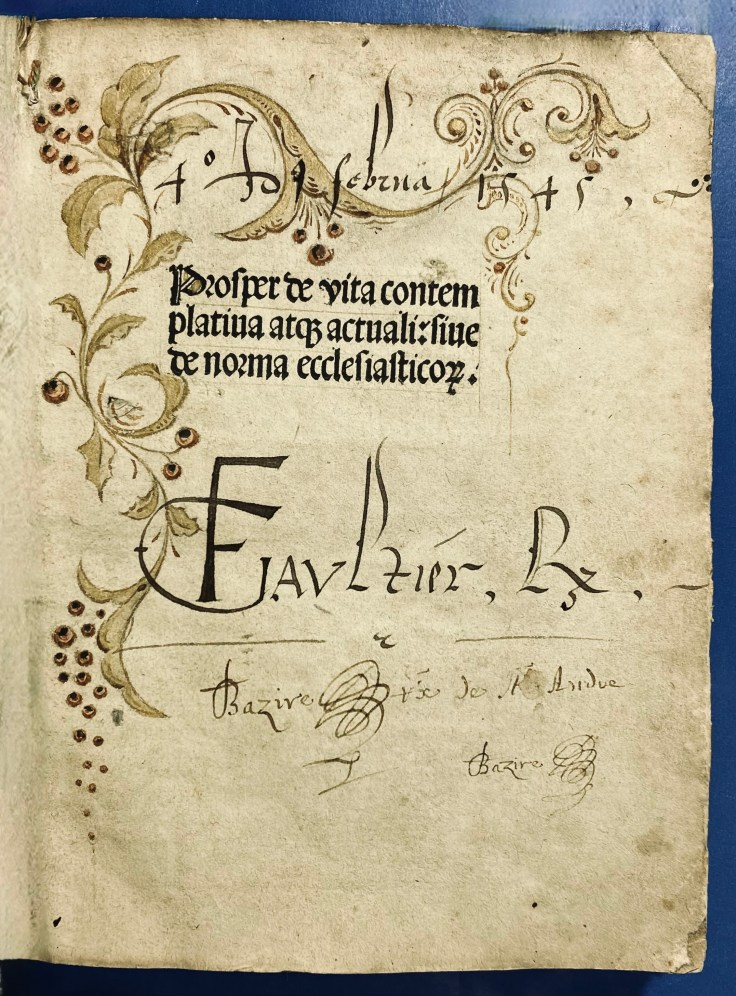 4° D 1 februa 1545,
Prosper de vita contem
platiua atqꝫ actuali: siue
de norma ecclesiasticoꝝ.
F Gaultier,
Bazire de St Andre
Bazire